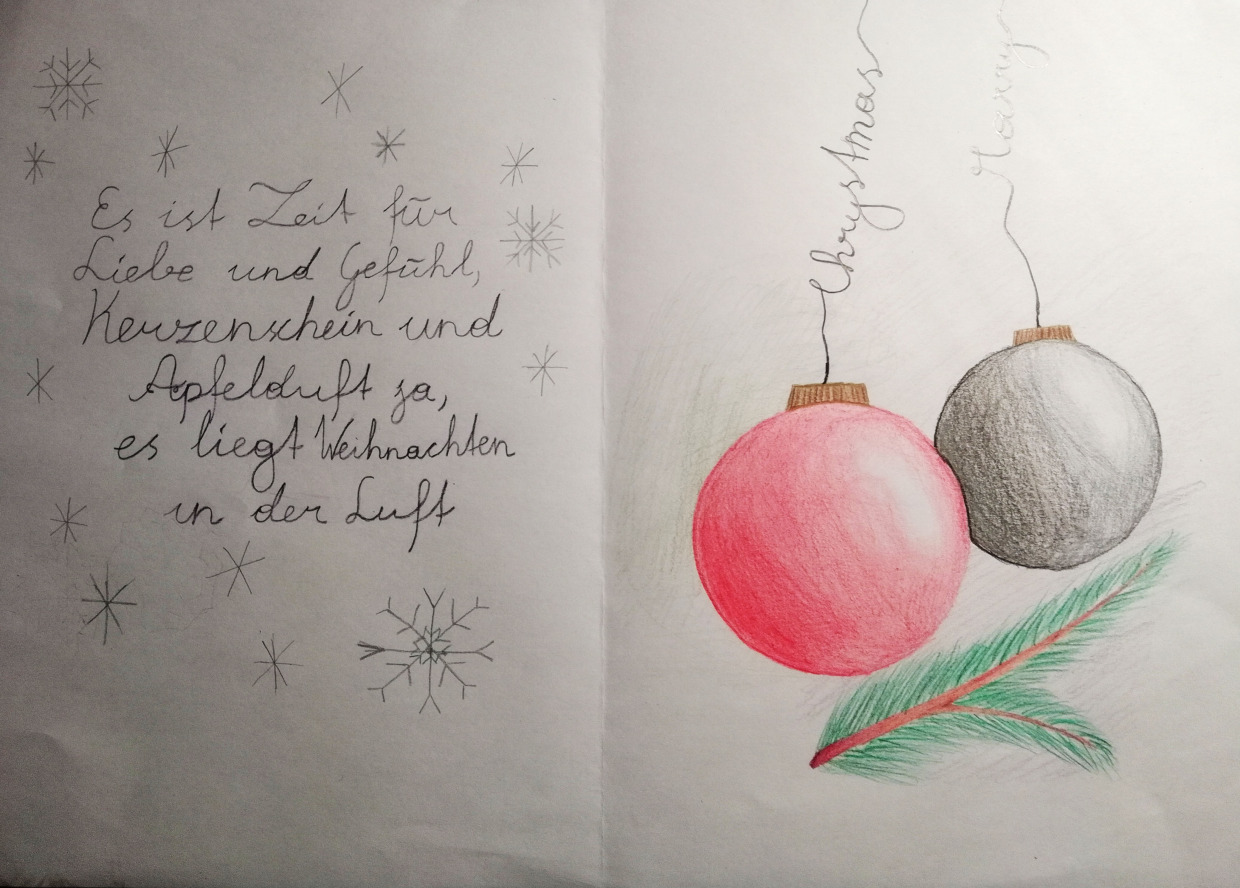 Es ist Zeit für
Liebe und Gefühl,
Kerzenschein und
Apfelduft ja,
es liegt Weihnachten
in der Luft
Chrystmas
Marry